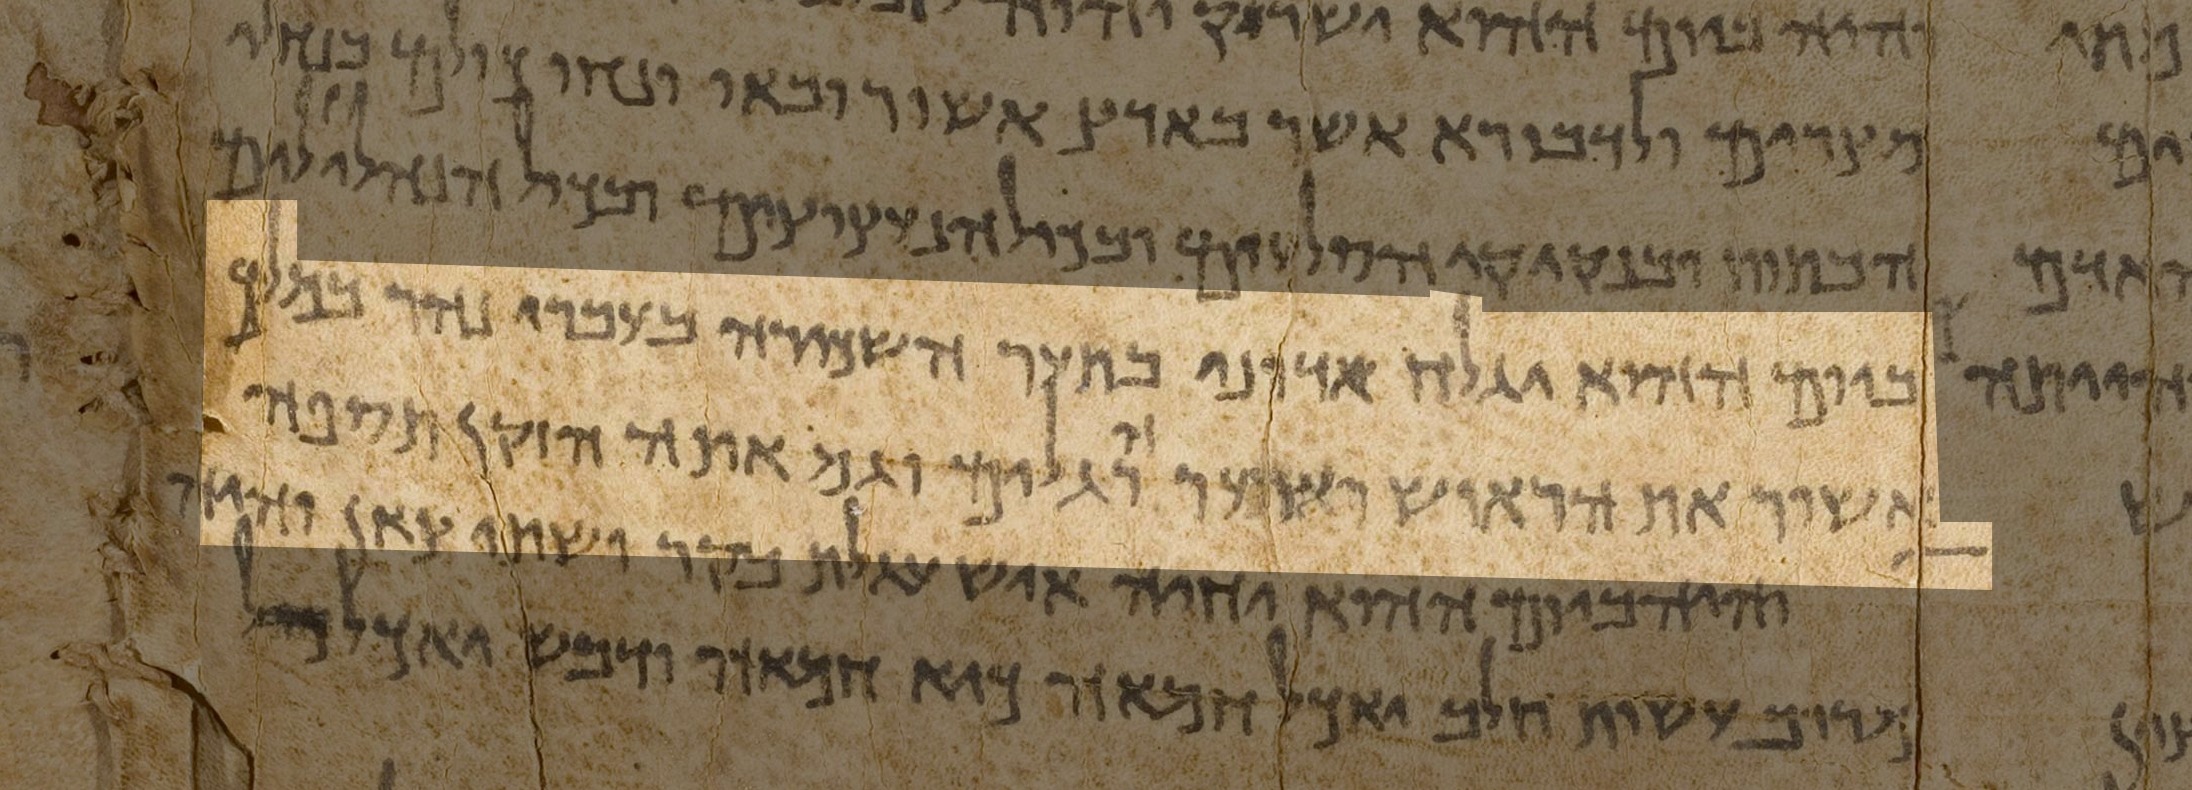 והיה ביום ההוא ישרוק יהוה
מצרים ולדבורא אשר בארץ אשור ובאו ונחו כולם בנחלי
הבתות ובנקיקי הסלעים ובכול הנעצוצים ובכל הנהלולים
ביום ההוא יגלח אדוני בתער השכירה בעברי נהר במלך
אשור את הראיש ושער רגלים וגם את הזקן תספה
והיה ביום ההוא יחיה איש עגלת בקר ושתי צאן והיה
מרוב עשות חלב יאכל חמאה כיא חמאה ודבש יאכל